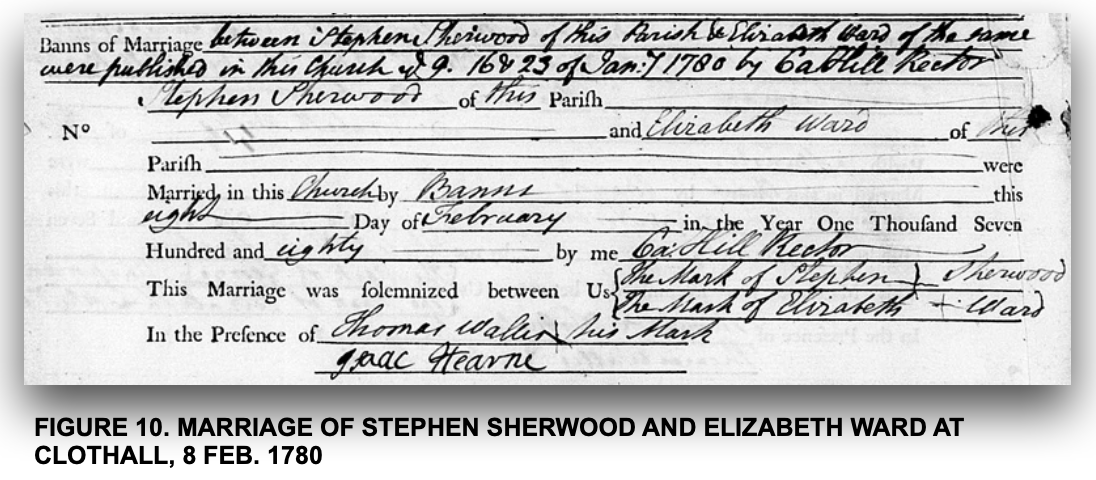 Banns of Marriage between Stephen Sherwood of this Parish & Elizabeth Ward of the same
were published in this Church ye 9. 16 & 23 of Jan:y 1780 by Ca Hill Rector
Stephen Sherwood of this Parish
No and Elizabeth Ward of this
Parish were
Married in this Church by Banns this
eight Day of February in the Year One Thousand Seven
Hundred and eighty by me Ca: Hill Rector
This Marriage was solemnized between Us { The Mark of Stephen } Sherwood
{ The Mark of Elizabeth + Ward
In the Presence of Thomas Wallis his Mark
Isaac Hearne
FIGURE 10. MARRIAGE OF STEPHEN SHERWOOD AND ELIZABETH WARD AT
CLOTHALL, 8 FEB. 1780